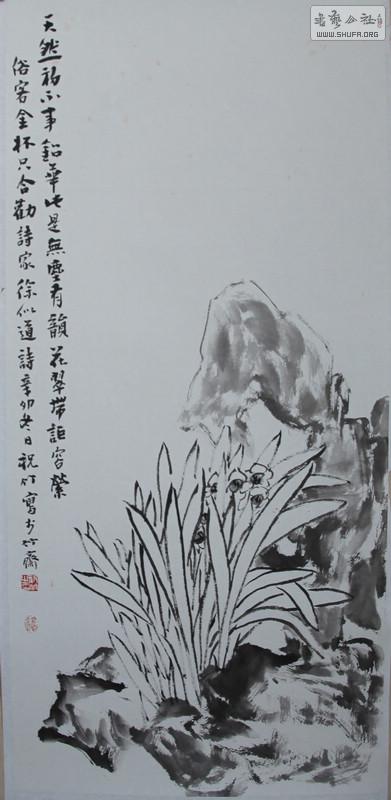 天然初不事鉛華此是無塵有韻花翠帶詎容縈
俗客金杯只合勸詩家徐似道詩辛卯冬日祝竹寫於竹齋
書藝公社
WWW.SHUFA.ORG